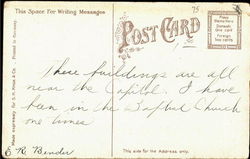 This Space For Writing Messages
POST CARD
75
Place
Domestic
One cent
Foreign
two cents
These buildings are all
near the Capitol. I have
been in the Baptist Church
one times
E R Bender
This side for the Address only.